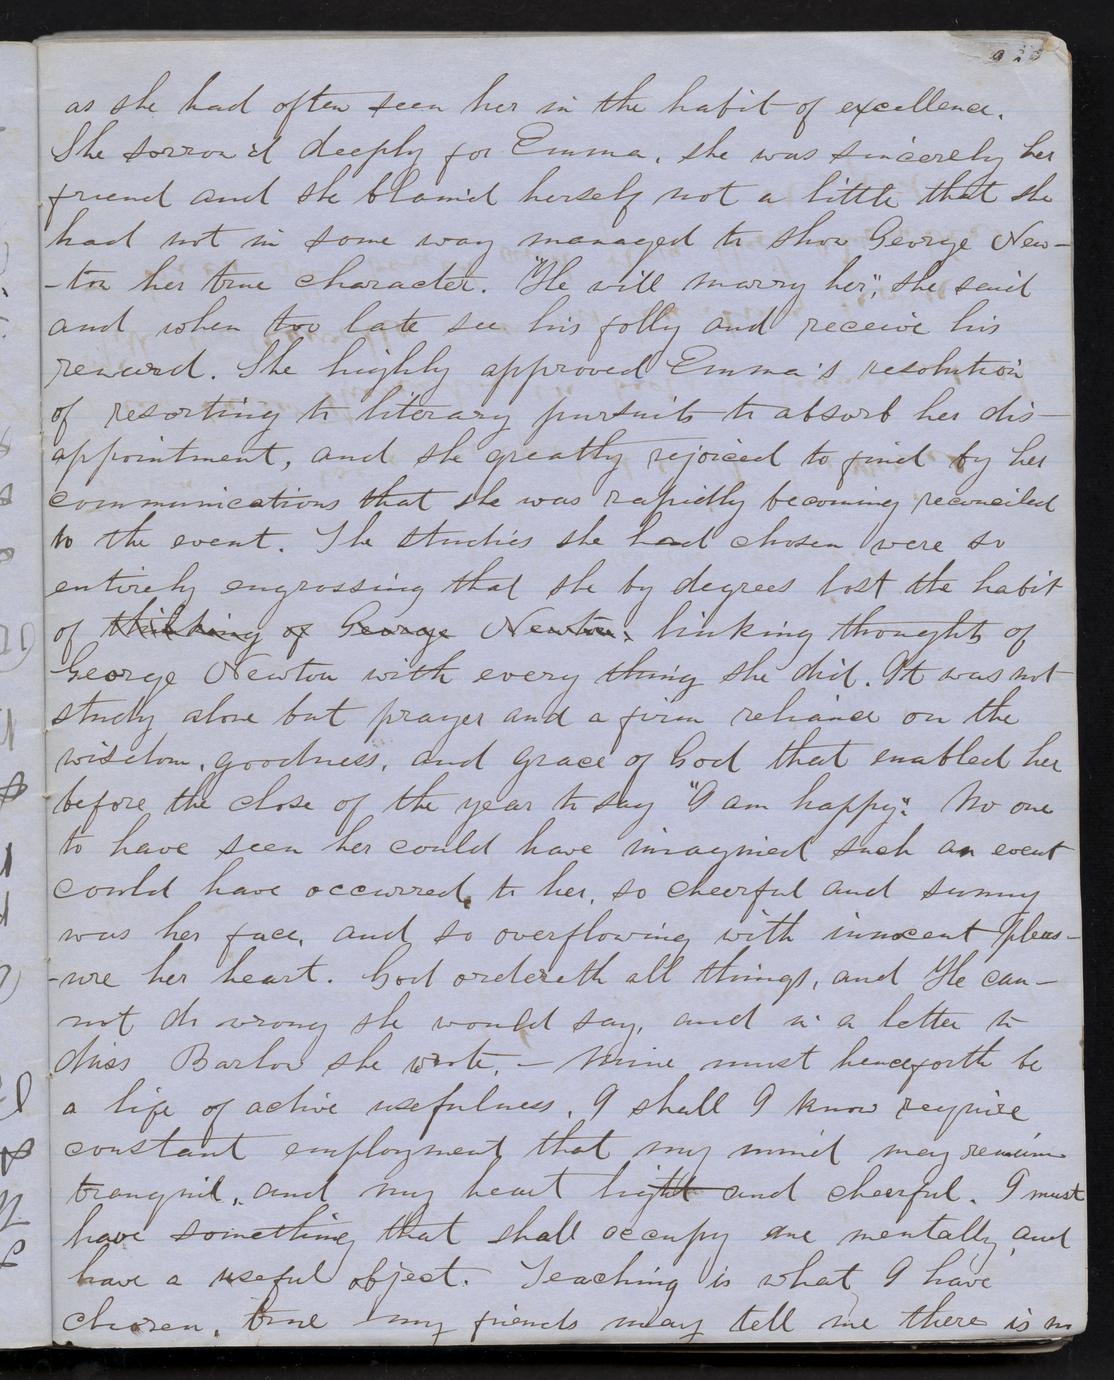 as she had often seen her in the habit of excellence.
She sorrow'd deeply for Emma, she was sincerely her
friend and she blam'd herself not a little that she
had not in some way managed to show George New-
-ton her true character. "He will marry her", she said
and when too late see his folly and receive his
reward. She highly approved Emma's resolution
of resorting to literary pursuits to absorb her dis-
appointment, and she greatly rejoiced to find by her
communications that she was rapidly becoming reconciled
to the event. The studies she had chosen were so
entirely engrossing that she by degrees lost the habit
of thinking of George Newton. linking thoughts of
George Newton with every thing she did. It was not
study alone but prayer and a firm reliance on the
wisdom, goodness, and grace of God that enabled her
before the close of the year to say "I am happy". No one
to have seen her could have imagined such an event
could have occurred, to her, so cheerful and sunny
was her face, and so overflowing with innocent pleas-
-ure her heart. God ordereth all things, and He can-
not do wrong she would say, and in a letter to
Miss Barlow she wrote, - Mine must henceforth be
a life of active usefulness. I shall I know require
constant employment that my mind may remain
tranquil, and my heart light and cheerful. I must
have something that shall occupy me mentally, and
have a useful object. Teaching is what I have
chosen, true my friends may tell me there is no